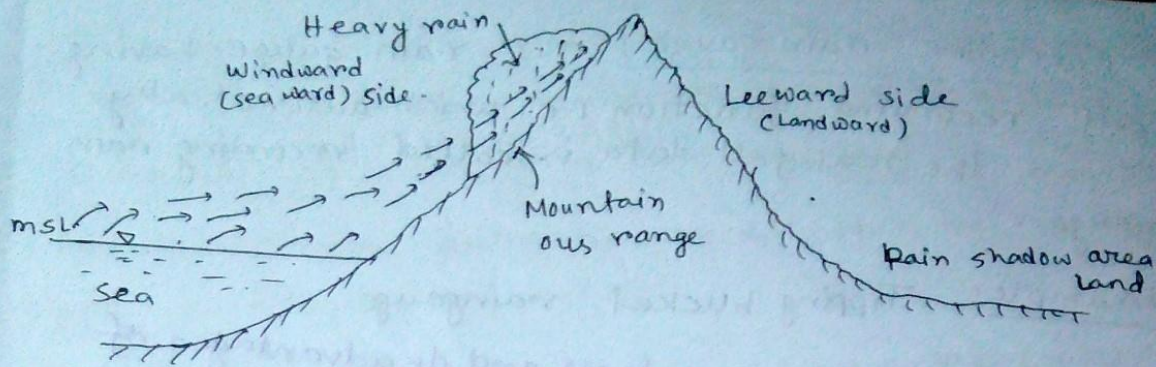 Heavy rain
Windward
(sea ward) side.
Leeward side
(Landward)
Mountain
ous range
MSL
Sea
Rain shadow area
Land